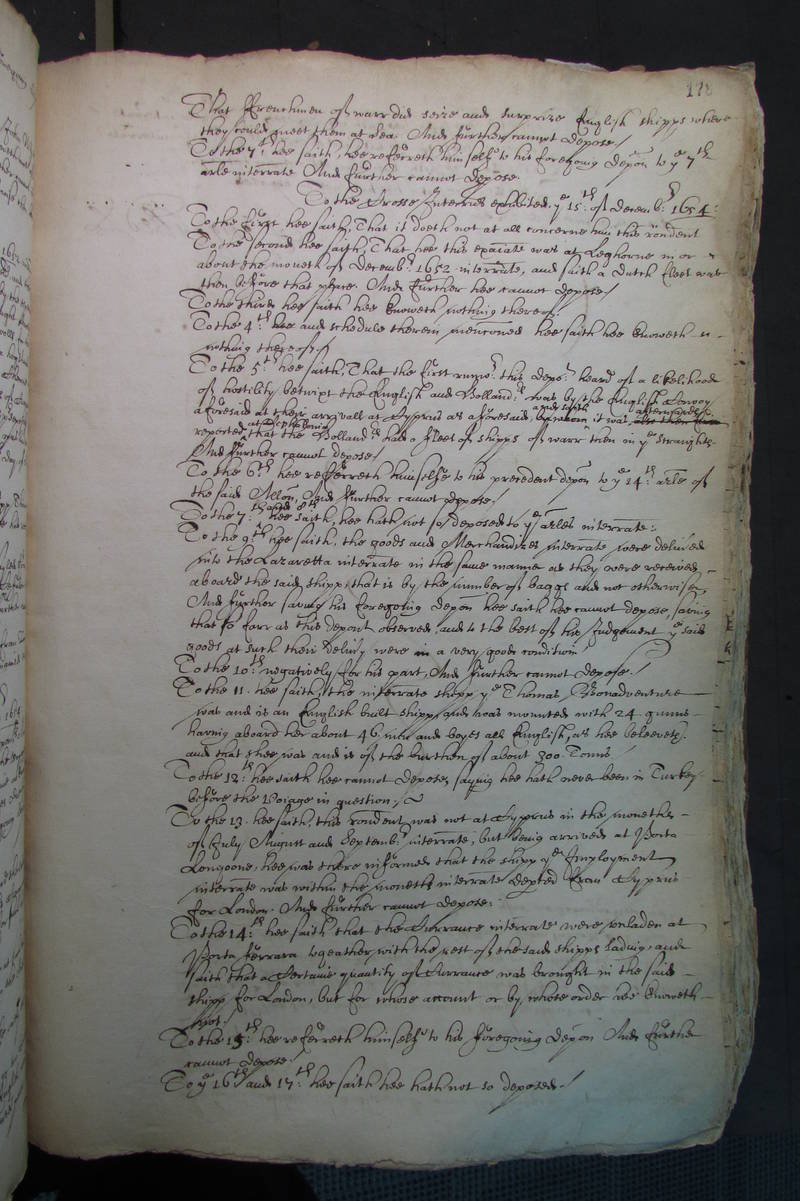 178
That ffrenchmen of warr did seize and surprize English shipps where
they could meet them at sea. And further cannot depose./
To the 7th hee saith, hee referreth himselfe to his foregoing depon to ye 7th
arle interrate And further cannot depose.
To the Crosse Interries exhibited ye 15th of Decembr 1654:
To the first hee saith, That it doeth not at all concerne him this rondent
To the second hee saith, That hee this examate was at Leghorne in or
about the moneth of Decembr 1652 interrate, and saith a Dutch fleet was
then before that place. And further hee cannot depose./
To the third hee saith hee knoweth nothing thereof.
To the 4th hee and schedule therein mentioned hee saith hee knoweth
nothing thereof./
To the 5th hee saith, That the first rumor this depot heard of a likelihood
of hostility betwixt the English and Hollandrs was by the English Convoy
aforesaid at their arrivall at Cyprus as aforesaid, and saith it was afterwards
reported at that the Hollandrs had a fleet of shipps of warr then in ye Straights.
And further cannot depose./
To the 6th hee referreth himselfe to his precedent depon to ye 14th arle of
the said Allon, And further cannot depose./
To the 7th and 8th hee saith, hee hath not so deposed to ye arles interrate:
To the 9th hee saith, the goods and Merchandizes interrate were delived
into the Lazaretta interrate in the same manner as they were received
aboard the said shipp, that is by the number of baggs and not otherwise,
And further saving his foregoing depon hee saith hee cannot depose, saving
that so farr as this deponent observed, and to the best of his Judgement ye said
goods at such their delivy were in a very good condition
To the 10th negatively for his part, And further cannot depose./
To the 11. hee saith, the interrate shipp ye Thomas Bonadventure
was and is an English built shipp, and was mounted with 24 gunns
having aboard her about 46 men and boyes all English, as hee beleeveth,
and that shee was and is of the burthen of about 300 Tonns
To the 12th hee saith hee cannot depose, saying hee hath never been in Turkey
before the Voiage in question./
To the 13. hee saith, this rondent was not at Cyprus in the moneths
of July August and Septembr interrate, but being arrived at Porto
Longoone, hee was there informed that the shipp ye Imployment
interrate was within the moneth interrate depted from Cyprus
for London. And further cannot depose.
To the 14th hee saith that the Currance interrate were unladen at
Porta fferrara togeather with the rest of the said shipps lading, and
saith that a Certaine quantity of Currance was brought in the said
shipp for London, but for whose account or by whose order hee knoweth
not./
To the 15th hee referreth himselfe to his foregoing depon And further
cannot depose./
To ye 16th and 17th hee saith hee hath not so deposed./